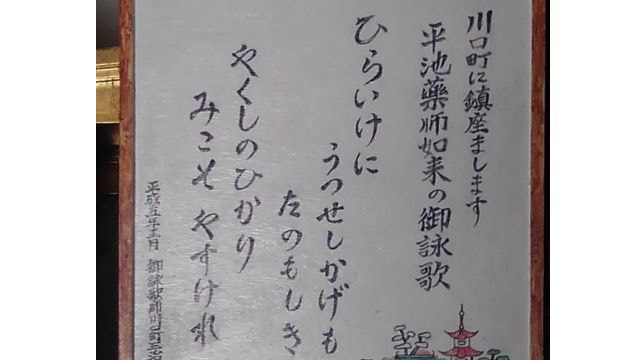 川口町に鎮座まします
平池薬師如来の御詠歌
ひらいけに
うつせしかげも
たのもしき
やくしのひかり
みこそやすけれ
平成五年十二月 御詠歌 川口町